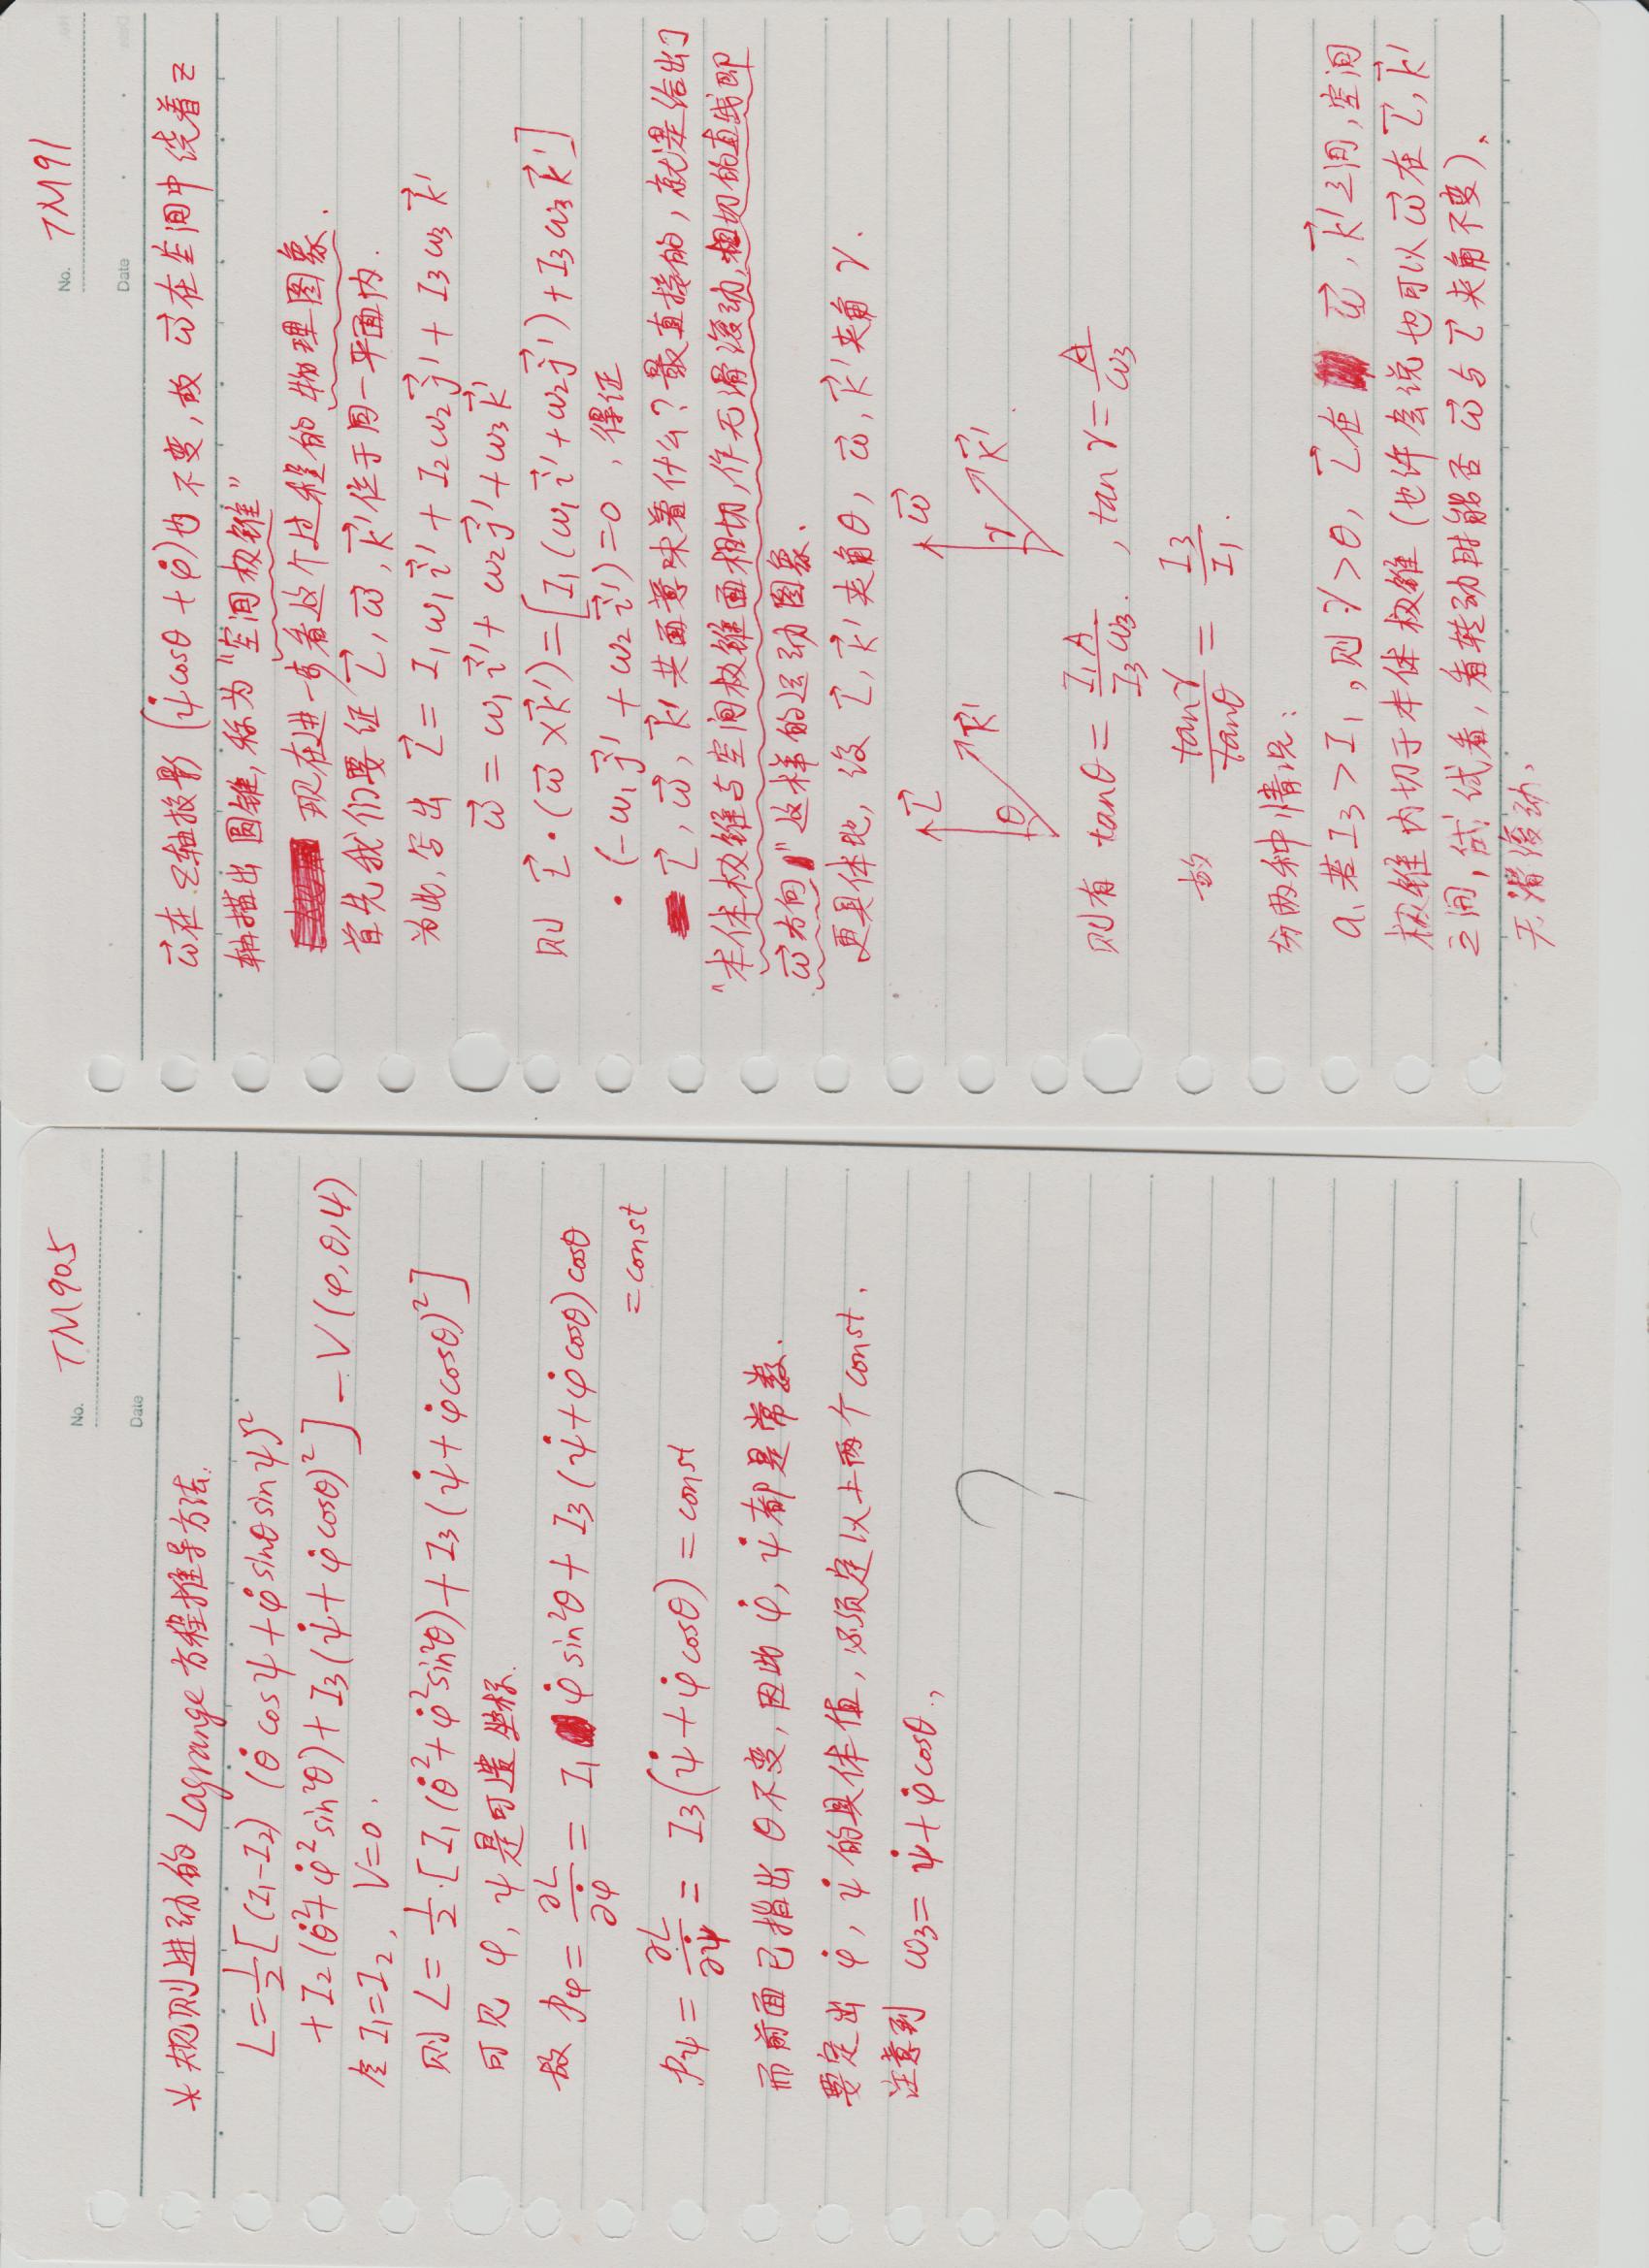 No. TM90.5
Date
* 规则进动的 Lagrange 方程推导方法.
L=½[(I₁-I₂) (θ̇ cosψ+φ̇ sinθ sinψ)²
+I₂(θ̇²+φ̇² sin²θ)+I₃(ψ̇+φ̇ cosθ)²]-V(φ,θ,ψ)
令 I₁=I₂, V=0.
则 L= ½·[I₁(θ̇²+φ̇² sin²θ)+I₃(ψ̇+φ̇ cosθ)²]
可见 φ, ψ 是可遗坐标.
故 pφ = ∂L/∂φ̇ = I₁ φ̇ sin²θ+I₃(ψ̇+φ̇ cosθ) cosθ
=const
pψ = ∂L/∂ψ̇ = I₃(ψ̇+φ̇ cosθ)=const
而前面已指出 θ不变,因此 φ̇, ψ̇ 都是常数.
要定出 φ̇, ψ̇ 的具体值,必须定以上两个 const.
注意到 ω₃= ψ̇+φ̇ cosθ.,
?
No. TM91
Date
ω⃗在 z轴投影 (ψ̇cosθ+φ̇)也不变,故 ω⃗在空间中绕着z
轴描出圆锥,称为“空间极锥”
现在进一步看这个过程的物理图象.
首先我们要证 L⃗, ω⃗, k⃗' 位于同一平面内.
为此,写出 L⃗= I₁ω₁i⃗'+I₂ω₂j⃗'+I₃ω₃k⃗'
ω⃗ = ω₁i⃗'+ω₂j⃗'+ω₃k⃗'
则 L⃗·(ω⃗×k⃗')=[I₁(ω₁i⃗'+ω₂j⃗')+I₃ω₃k⃗']
·(-ω₁j⃗'+ω₂i⃗')=0 ,得证
L⃗, ω⃗, k⃗' 共面意味着什么?最直接的,就是给出了
“本体极锥与空间极锥面相切,作无滑滚动,相切的直线即
ω⃗方向”这样的运动图象.
更具体地,设 L⃗, k⃗' 夹角θ, ω⃗, k⃗' 夹角γ.
L⃗ k⃗' θ ω⃗ k⃗' γ
则有 tanθ= I₁A/I₃ω₃. , tanγ= A/ω₃
故 tanγ/tanθ = I₃/I₁.
分两种情况:
a. 若 I₃>I₁,则 γ>θ, L⃗在 ω⃗, k⃗' 之间,空间
极锥内切于本体极锥(也许会说也可以 ω⃗在 L⃗, k⃗'
之间,试试看,看转动时能否 ω⃗与 L⃗夹角不变).
无滑滚动.